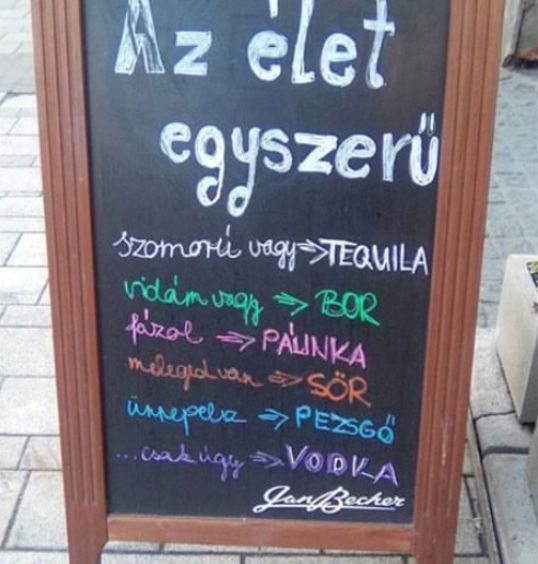 Az élet
egyszerű
szomorú vagy => TEQUILA
vidám vagy => BOR
fázol => PÁLINKA
meleged van => SÖR
ünnepelsz => PEZSGŐ
...csak úgy => VODKA
Jan Becher